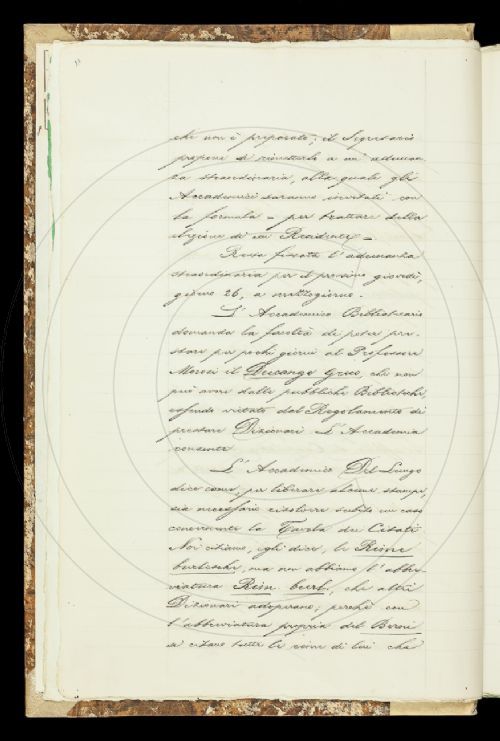 che non è preparato; il Segretario
propone di rimetterla a un'adunan
za straordinaria, alla quale gli
Accademici saranno invitati con
la formula = per trattare della
elezione di un Residente =
Resta fissata l'adunanza
straordinaria per il prossimo giovedì,
giorno 26, a mezzogiorno.
L'Accademico Bibliotecario
domanda la facoltà di poter pre-
stare per pochi giorni al Professore
Morosi il Ducange Greco, che non
può avere dalle pubbliche Biblioteche,
essendo vietato dal Regolamento di
prestare Dizionari. L'Accademia
consente.
L'Accademico Del Lungo
dice come, per liberare alcune stampe,
sia necessario risolvere subito un caso
concernente la Tavola dei Citati.
Noi citiamo, egli dice, le Rime
burlesche, ma non abbiamo l'abbre-
viatura Rim. burl., che altri
Dizionari adoperano; perchè con
l'abbreviatura propria del Berni
si citano tutte le rime di lui che